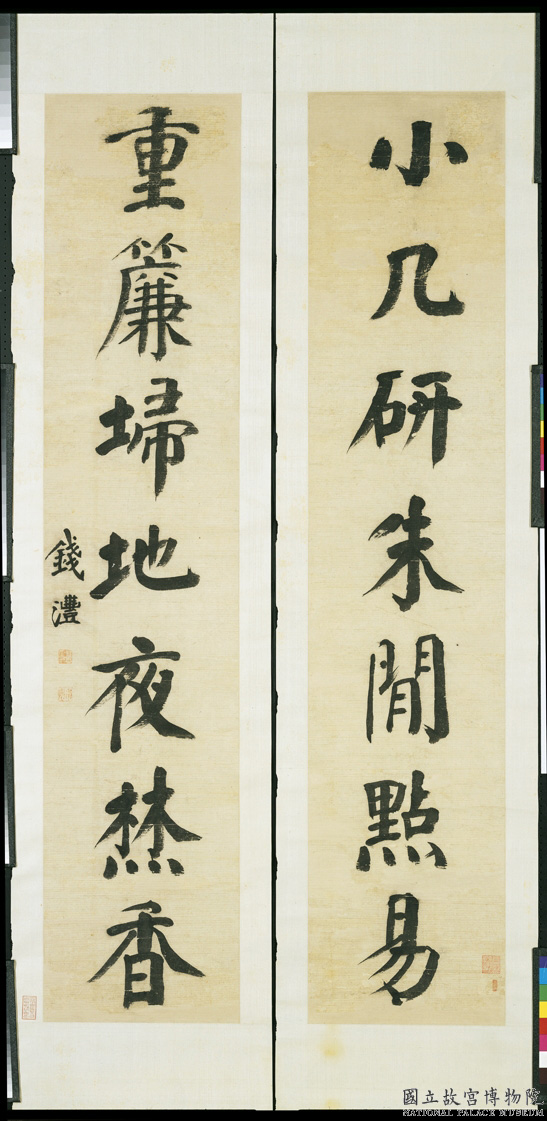 小几研朱閒點易
重簾埽地夜焚香
錢灃
國立故宮博物院
NATIONAL PALACE MUSEUM